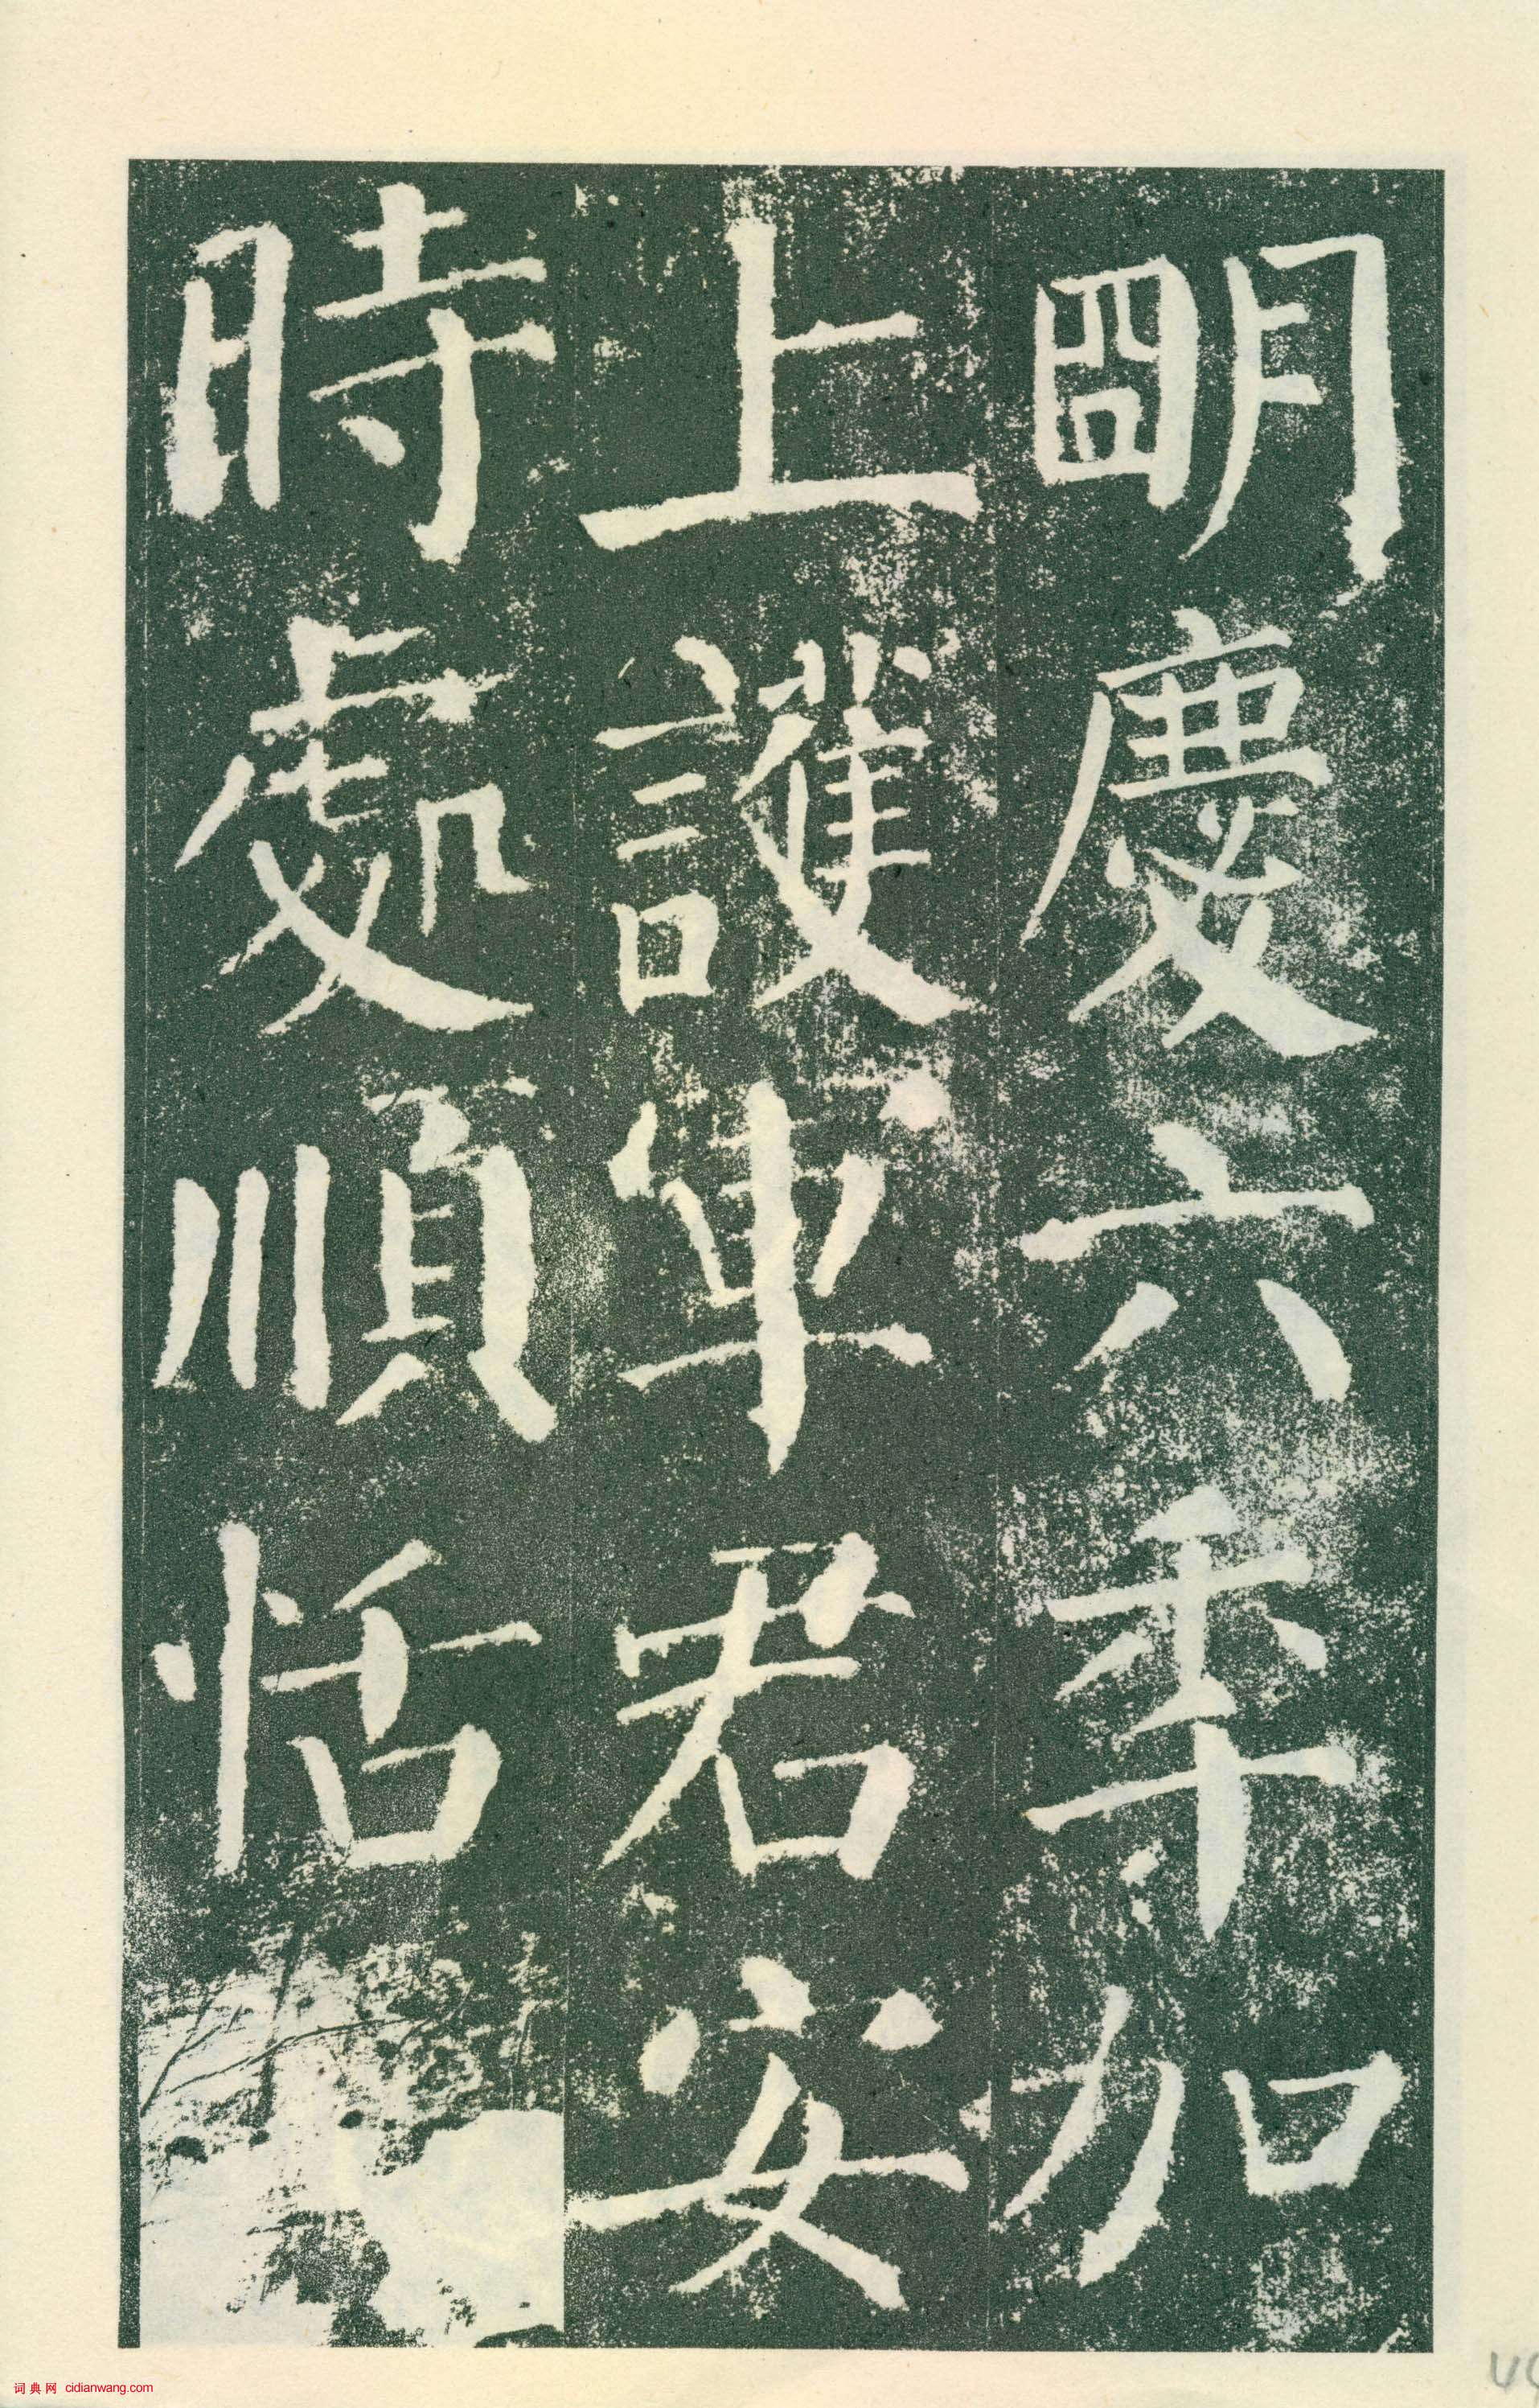 明慶六年加
上護軍君安
時處順恬
词典网 cidianwang.com